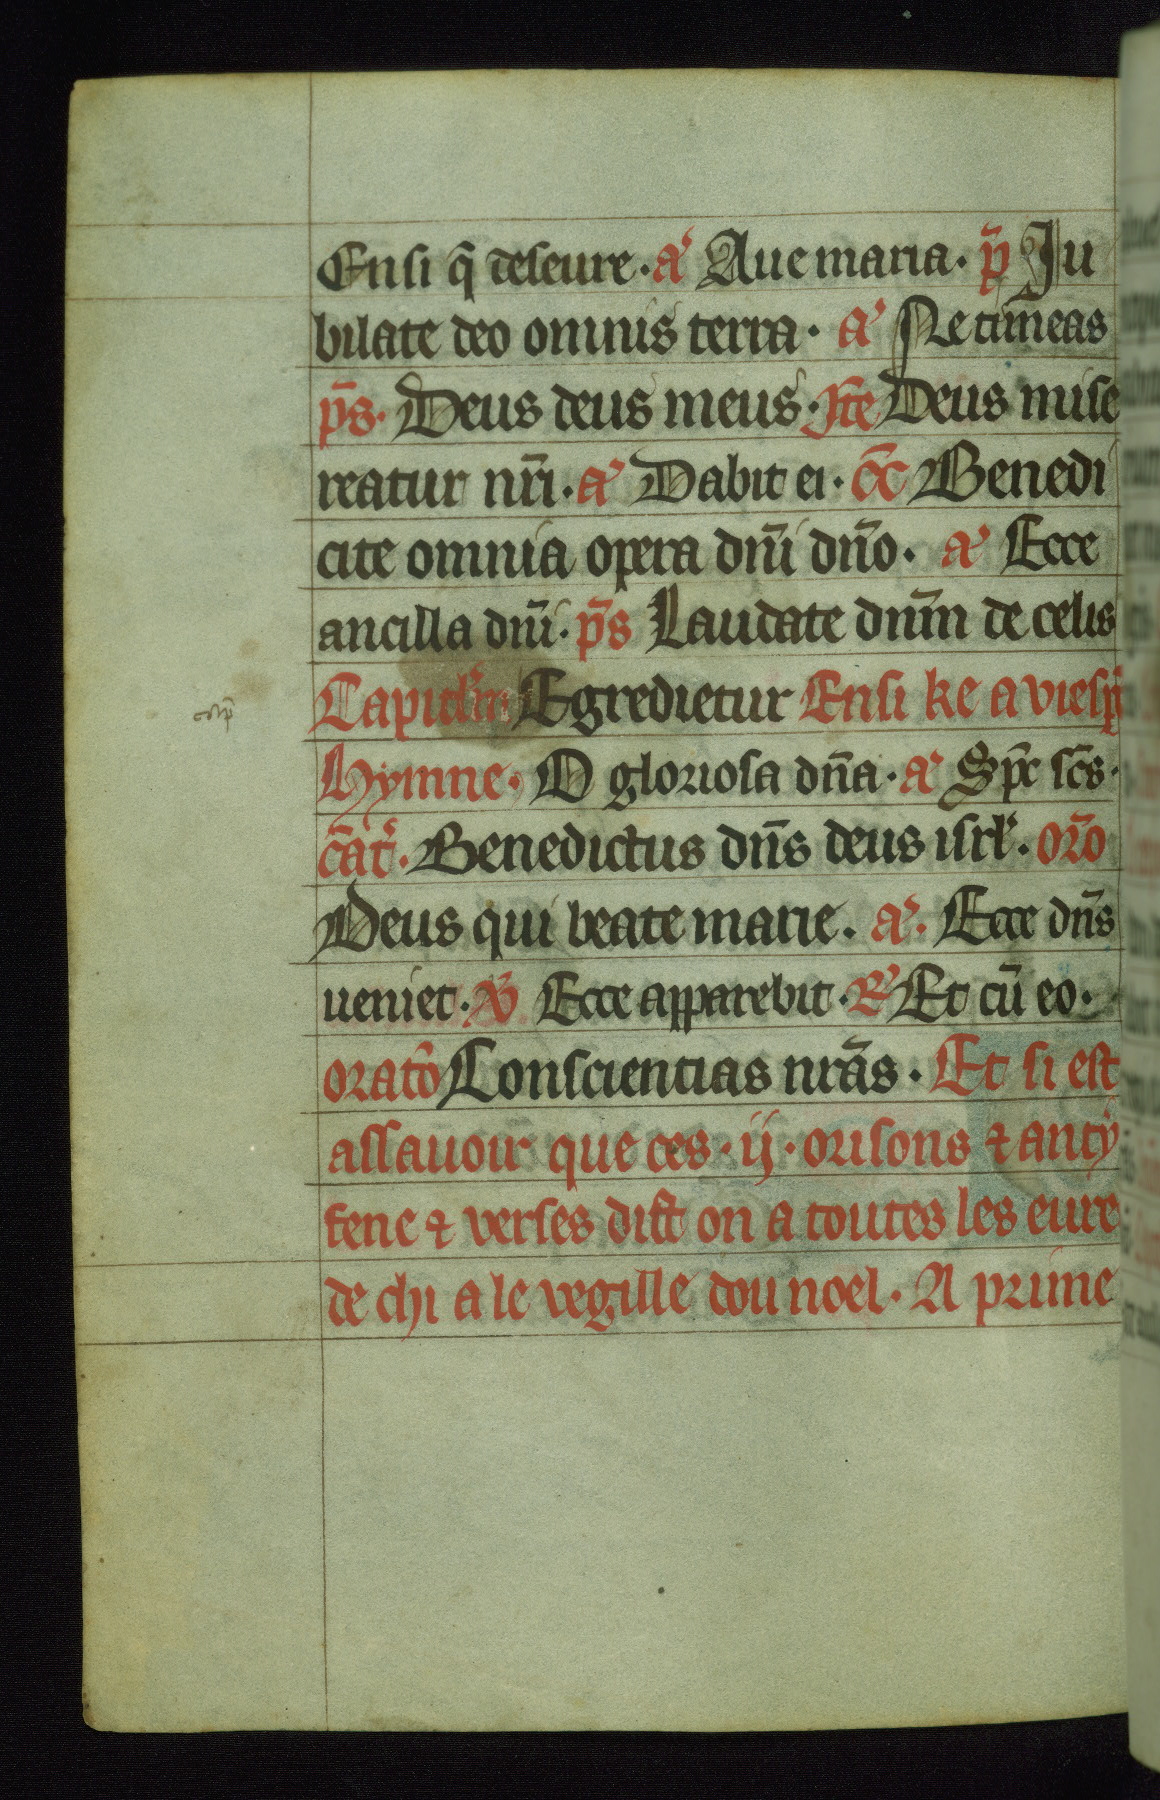 Ensi q̃ deseure · a᷒ Aue maria · p̃ Ju
bilate deo omnis terra · a᷒ Ne timeas
p̃s · Deus deus meus · Jt̃e Deus mise
reatur nr̃i · a᷒ Dabit ei · c̃c Benedi
cite omnia opera dñi dño · a᷒ Ecce
ancilla dñi · p̃s Laudate dñm de celis
Capitl'm Egredietur Ensi ke a viesp̃
Hymne · O gloriosa dña · a᷒ Sp̃c sc̃s ·
c̃at᷒ · Benedictus dñs deus isrl᷒ · or̃o
Deus qui beate marie · a᷒ · Ecce dñs
ueniet · ℣ Ecce apparebit · ℟ Et cũ eo ·
orat̃o Conscientias nr̃as · Et si est
assauoir que ces · ij · orisons ⁊ anty
fene ⁊ verses dist on a toutes les eure
de chi a le vegille dou noel · A prime